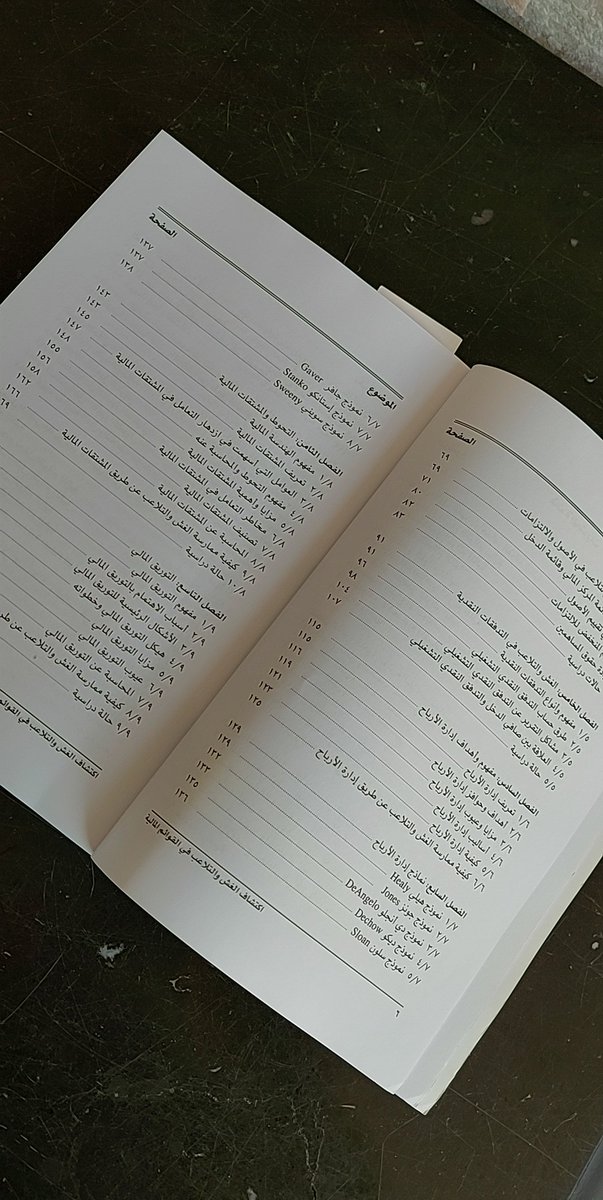 الصفحة
لاعب في الأصول والالتزامات ٦٩
المركز المالي وقائمة الدخل ٦٩
تقييم الأصول ٧١
المخفض للالتزامات ٨٠
حقوق المساهمين ٨٢
حالات دراسية ٨٣
الفصل الخامس: الغش والتلاعب في التدفقات النقدية
١/٥ مفهوم وأنواع التدفقات النقدية ٩١
٢/٥ طرق حساب التدفق النقدي التشغيلي ٩١
٣/٥ مشاكل التقرير عن التدفق النقدي التشغيلي ٩٦
٤/٥ العلاقة بين صافي الدخل والتدفق النقدي التشغيلي ٩٨
٥/٥ حالة دراسية ١٠٤
١٠٧
الفصل السادس: مفهوم وأهداف إدارة الأرباح
١/٦ تعريف إدارة الأرباح ١١٥
٢/٦ أهداف وحوافز إدارة الأرباح ١١٥
٣/٦ مزايا وعيوب إدارة الأرباح ١١٦
٤/٦ أساليب إدارة الأرباح ١١٩
٥/٦ كيفية إدارة الأرباح ١٢١
٦/٦ كيفية ممارسة الغش والتلاعب عن طريق إدارة الأرباح ١٢٣
١٢٥
الفصل السابع: نماذج إدارة الأرباح
١/٧ نموذج هيلي Healy ١٢٩
٢/٧ نموذج جونز Jones ١٢٩
٣/٧ نموذج دي أنجلو DeAngelo ١٣٢
٤/٧ نموذج ديكو Dechow ١٣٣
٥/٧ نموذج سلون Sloan ١٣٥
١٣٦
اكتشاف الغش والتلاعب في القوائم المالية
٦
الموضوع الصفحة
٦/٧ نموذج جافر Gaver ١٣٧
٧/٧ نموذج إستانكو Stanko ١٣٧
٨/٧ نموذج سويني Sweeny ١٣٨
الفصل الثامن: التحوط والمشتقات المالية
١/٨ مفهوم الهندسة المالية ١٤٣
٢/٨ تعريف المشتقات المالية ١٤٣
٣/٨ العوامل التي أسهمت في ازدهار التعامل في المشتقات المالية ١٤٥
٤/٨ مفهوم التحوط والمحاسبة عنه ١٤٧
٥/٨ مزايا وأهمية المشتقات المالية ١٤٨
٦/٨ مخاطر التعامل في المشتقات المالية ١٥٥
٧/٨ تصنيف المشتقات المالية ١٥٦
٨/٨ المحاسبة عن المشتقات المالية ١٥٨
٩/٨ كيفية ممارسة الغش والتلاعب عن طريق المشتقات المالية ١٦٢
١٠/٨ حالة دراسية ١٦٦
الفصل التاسع: التوريق المالي
١/٩ مفهوم التوريق المالي
٢/٩ أسباب الاهتمام بالتوريق المالي
٣/٩ الأشكال الرئيسية للتوريق المالي
٤/٩ هيكل التوريق المالي وخطواته
٥/٩ مزايا التوريق المالي
٦/٩ عيوب التوريق المالي
٧/٩ المحاسبة عن التوريق المالي
٨/٩ كيفية ممارسة الغش والتلاعب عن
٩/٩ حالة دراسية
اكتشاف الغش والتلاعب في القوائم